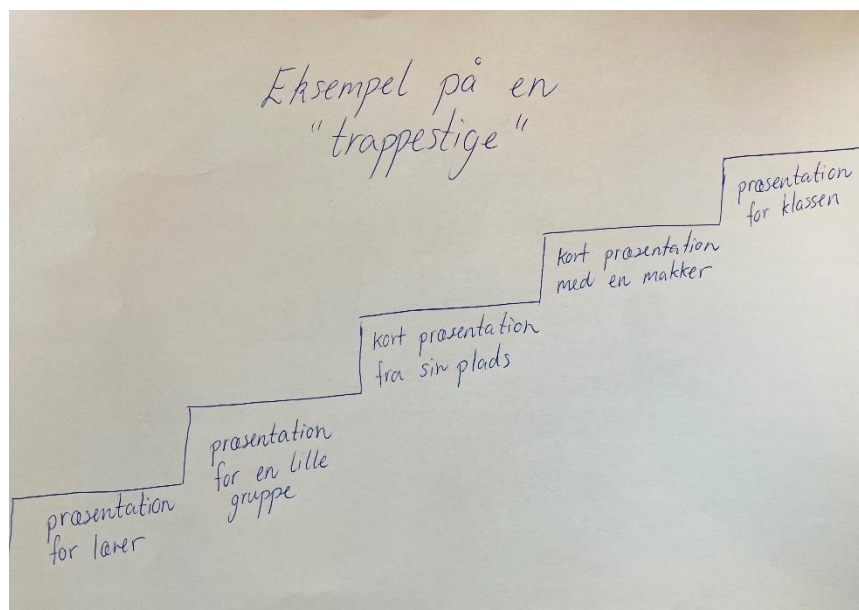 Eksempel på en
"trappestige"
præsentation
for lærer
præsentation
for en lille
gruppe
kort præsentation
fra sin plads
kort præsentation
med en makker
præsentation
for klassen